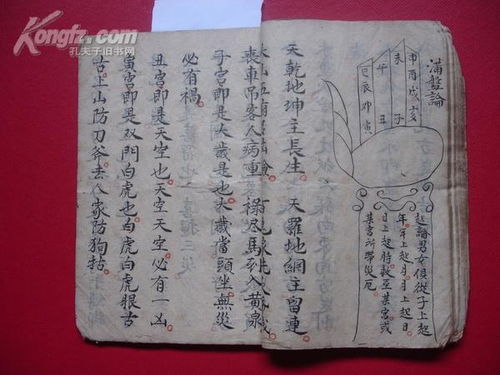 Kongfz.com
孔夫子旧书网
滿盤論
申酉戌亥
未
午
巳辰卯寅
丑
子
起論男女俱從子上起
年年上起月月上起日
日上起時數至某宮或
某宮所帶災厄
天乾地坤主長生。天羅地網主留連
喪車吊客人病重。祿尽馬到入黄泉
子宮即是大歲是也。大歲當頭坐無災
必有禍
丑宮即是天空也。天空天空必有一凶
寅宮即是双門白虎也。白虎白虎眼古
古。上山防刀斧。去人家防狗